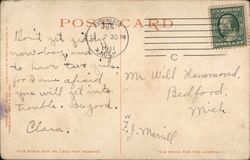 POST CARD
7 30 PM
1911
C
Don't get giddy
now boy and
to have two girls
for I am afraid
you will get into
trouble. Be good.
Clara.
Mr Will Hammond,
Bedford,
Mich.
F.J. Merrill
THIS SPACE MAY BE USED FOR MESSAGE.
THIS SPACE FOR THE ADDRESS.